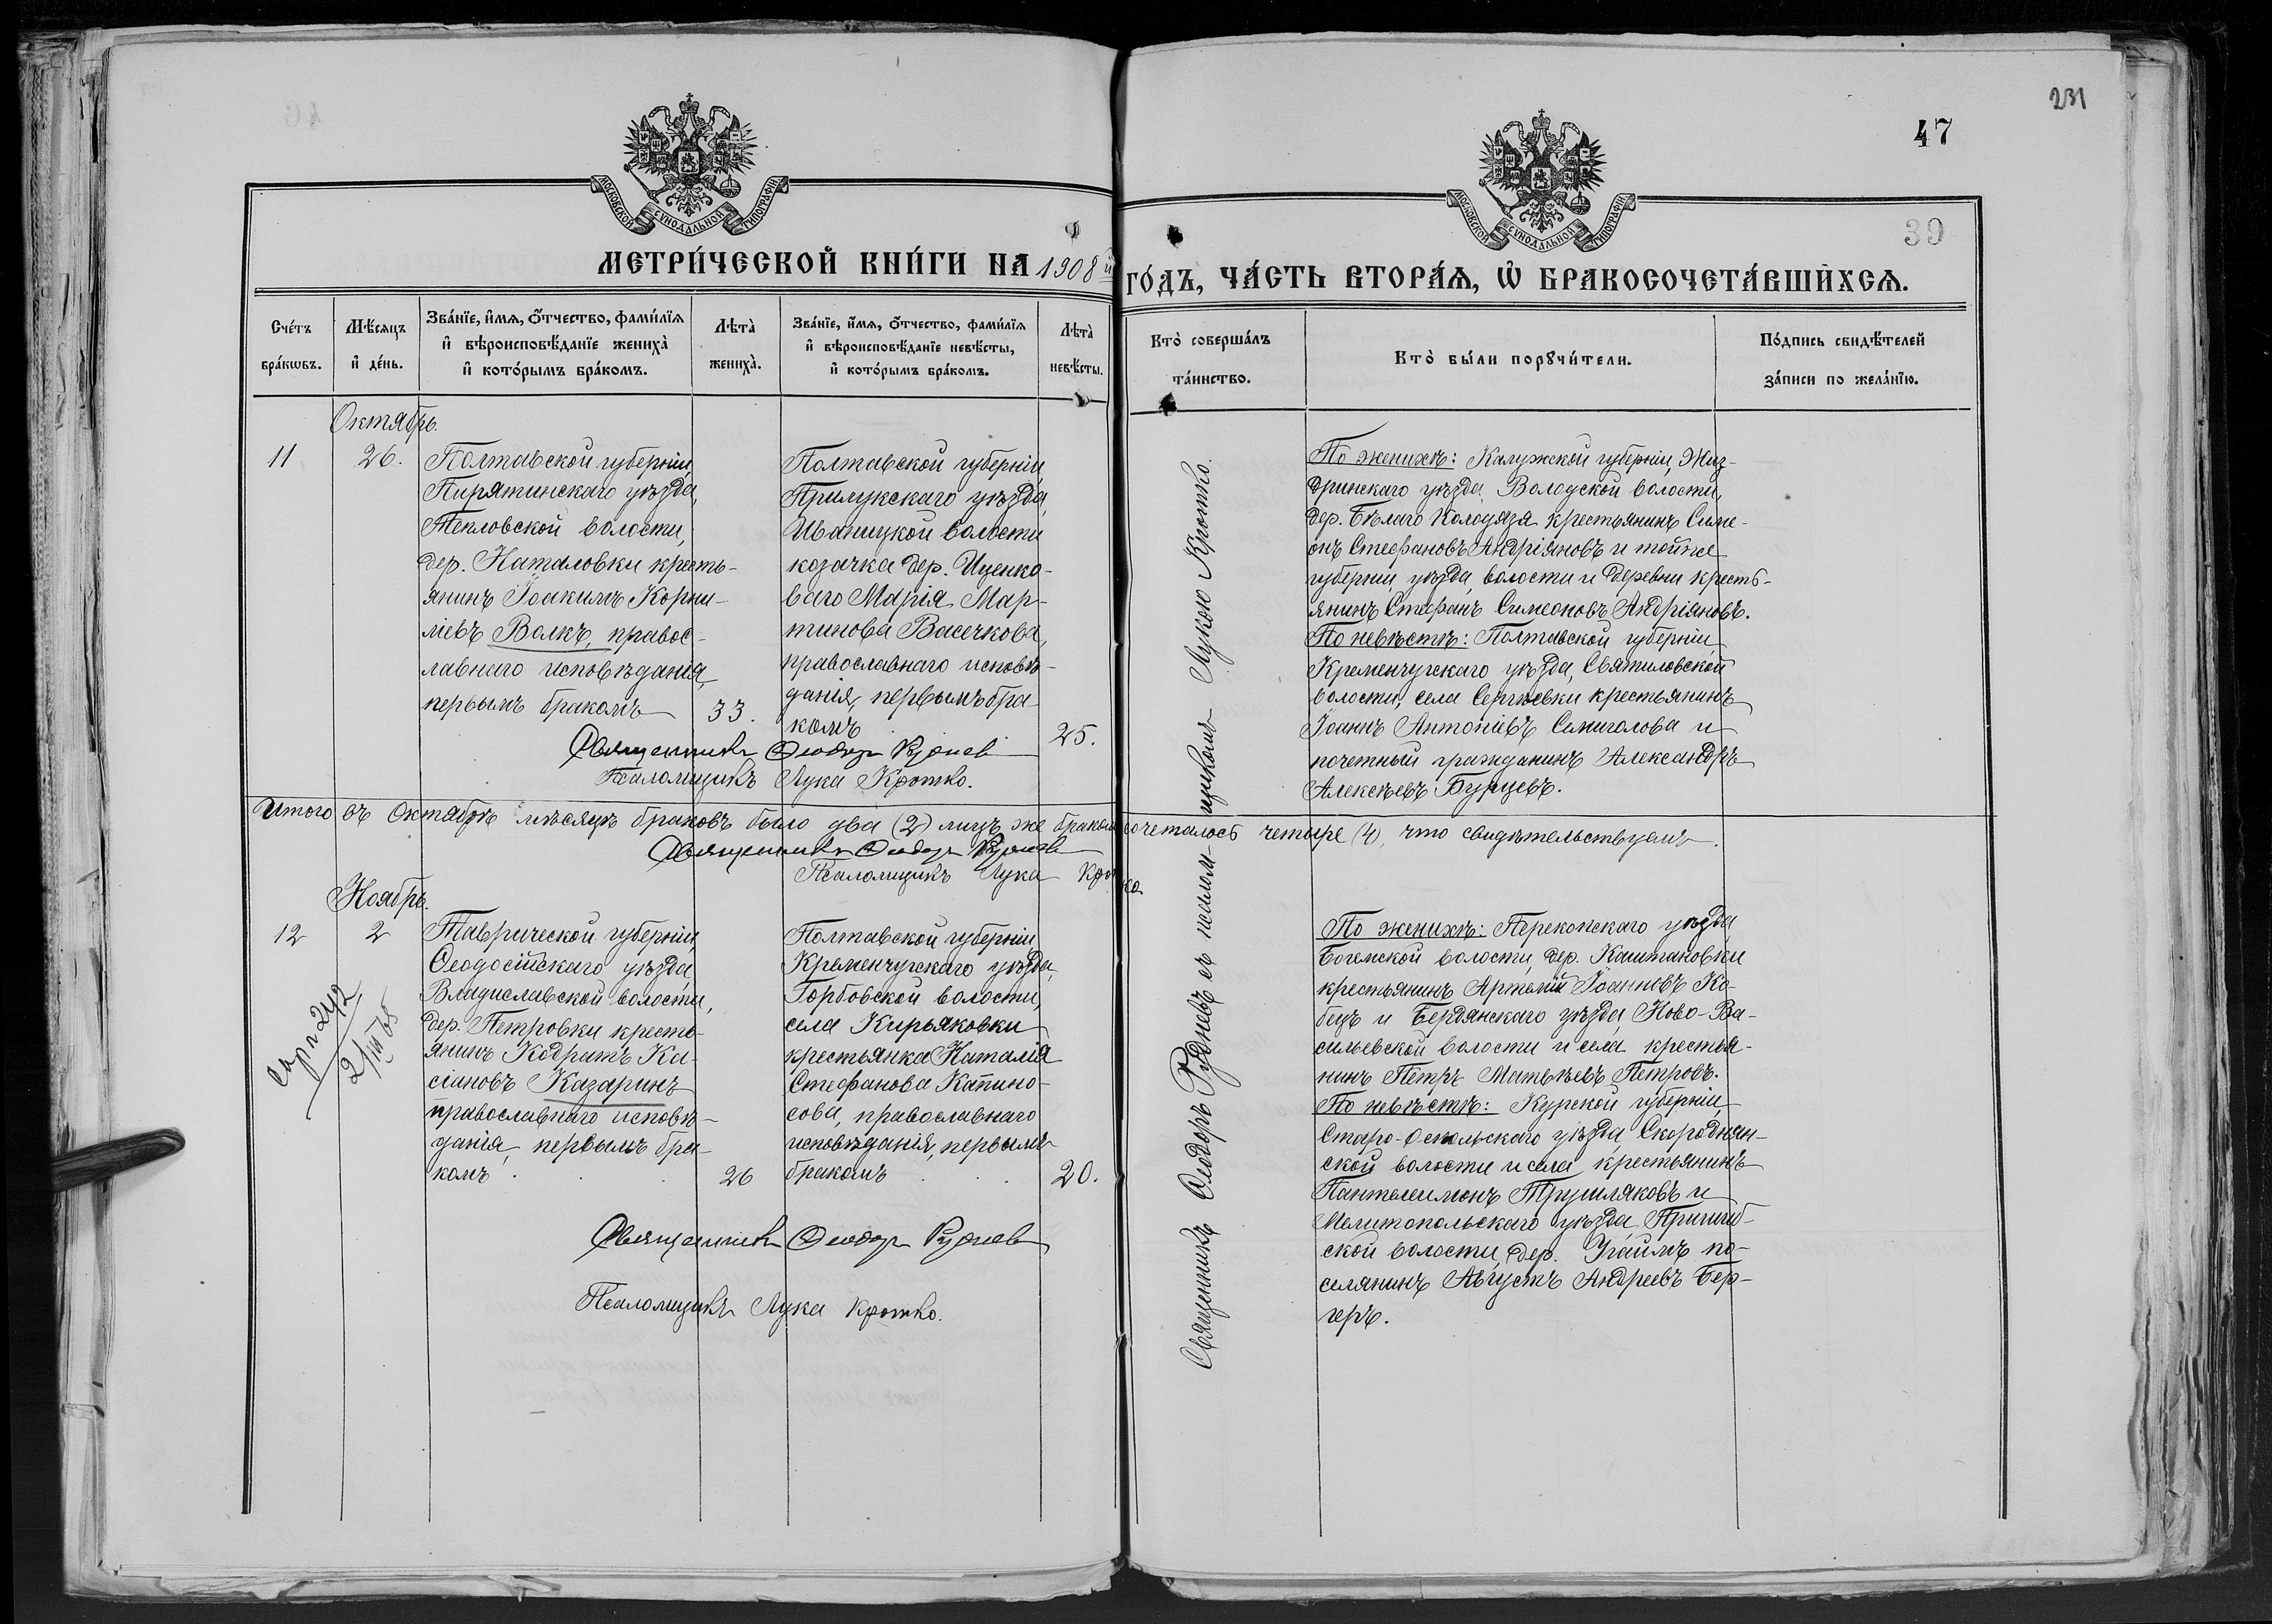 231
47
39
МОСКОВСКОЙ СѴНОДАЛЬНОЙ ТИПОГРАФІИ
МОСКОВСКОЙ СѴНОДАЛЬНОЙ ТИПОГРАФІИ
МЕТРИ́ЧЕСКОЙ КНИ́ГИ НА 1908й ГО́ДЪ, ЧА́СТЬ ВТОРА́Ѧ, Ѽ БРАКОСОЧЕТА́ВШИХСѦ.
Сче́тъ
бра́кѡвъ.
Мѣ́сяцъ
и҆ де́нь.
Зва́нїе, и҆́мѧ, о҆́тчество, фами́лїѧ
и҆ вѣроисповѣ́данїе жениха̀
и҆ кото́рымъ бра́комъ.
Лѣта̀
жениха̀.
Зва́нїе, и҆́мѧ, о҆́тчество, фами́лїѧ
и҆ вѣроисповѣ́данїе невѣ́сты,
и҆ кото́рымъ бра́комъ.
Лѣта̀
невѣ́сты.
Кто̀ соверша́лъ
та́инство.
Кто̀ бы́ли порꙋчи́тели.
По́дпись свидѣ́телей
за́писи по жела́нїю.
Октябрь.
11
26.
Полтавской губерніи,
Пирятинскаго уѣзда,
Тепловской волости,
дер. Наталовки кресть-
янинъ Іоакимъ Корни-
ліевъ Волкъ, правос-
лавнаго исповѣданія,
первымъ бракомъ
33.
Полтавской губерніи,
Прилукскаго уѣзда,
Иваницкой волости
козачка дер. Иценко-
ваго Марія Мар-
тинова Васечкова,
православнаго исповѣ-
данія, первымъ бра
комъ
25.
Священникъ Ѳеодоръ Руднев
Псаломщикъ Лука Кротко.
По женихѣ: Калужской губерніи, Жиз-
дринскаго уѣзда, Володской волости,
дер. Бѣлаго Колодязя крестьянинъ Симе-
онъ Стефановъ Андріяновъ и той же
губерніи, уѣзда, волости и деревни кресть-
янинъ Стефанъ Симеоновъ Андріяновъ.
По невѣстѣ: Полтавской губерніи
Кременчугскаго уѣзда, Святиловской
волости, села Сергѣевки крестьянинъ
Іоаннъ Антоніевъ Семиголова и
почетный гражданинъ Александръ
Алексѣевъ Бурцевъ.
Итого въ Октябрѣ мѣсяцѣ браковъ было два (2) лицъ же бракомъ сочеталось четыре (4), что свидѣтельствуемъ.
Священникъ Ѳеодоръ Руднев
Псаломщикъ Лука Кротко
Ноябрь.
12
2
Таврической губерніи,
Ѳеодосійскаго уѣзда,
Владиславской волости,
дер. Петровки кресть-
янинъ Кодратъ Ка-
сіановъ Казаринъ
православнаго исповѣ-
данія, первымъ бра-
комъ
26
Полтавской губерніи,
Кременчугскаго уѣзда,
Горбовской волости,
села Кирьяковки
крестьянка Наталія
Стефанова Капино-
сова, православнаго
исповѣданія, первымъ
бракомъ
20.
Священникъ Ѳеодоръ Руднев
Псаломщикъ Лука Кротко.
Священникъ Ѳеодоръ Рудневъ съ псалом-щикомъ Лукою Кротко.
По женихѣ: Перекопскаго уѣзда
Богемской волости, дер. Каштановки
крестьянинъ Артемій Іоанновъ Ко-
бецъ и Бердянскаго уѣзда, Ново-Ва-
сильевской волости и села крестья-
нинъ Петръ Матвѣевъ Петровъ.
По невѣстѣ: Курской губерніи,
Старо-Оскольскаго уѣзда, Скороднян-
ской волости и села крестьянинъ
Пантелеимонъ Трушляковъ и
Мелитопольскаго уѣзда, Пришиб-
ской волости, дер. Угаймъ по-
селянинъ Августъ Андреевъ Бер-
геръ.